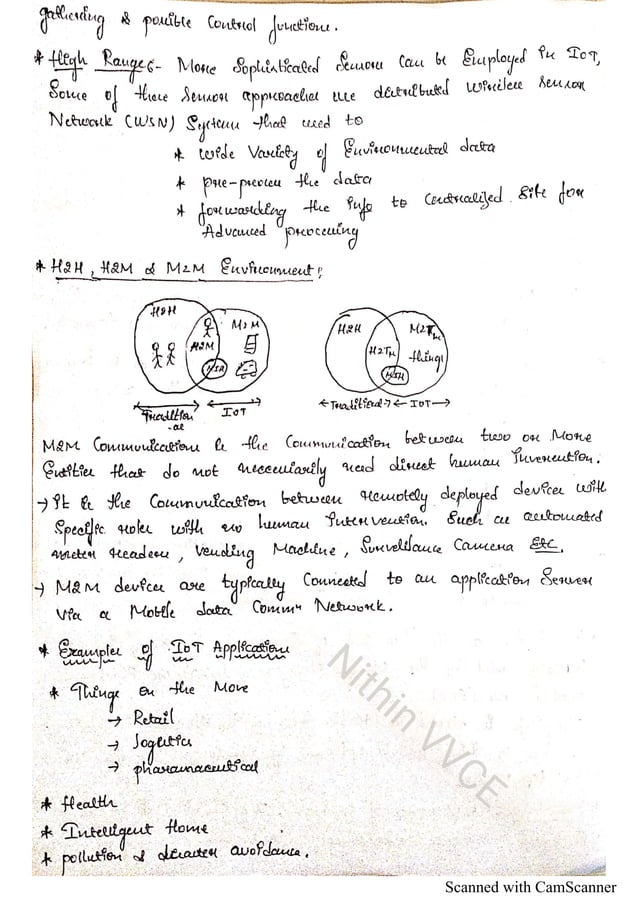 gathering & possible Control functions.
* High Range :- More Sophisticated Sensors Can be Employed in IoT,
Some of these Sensor approaches use distributed wireless Sensor
Network (WSN) Systems that used to
* wide Variety of Environmental data
* pre-process the data
* forwarding the info to Centralized Site for
Advanced processing
* H2H, H2M & M2M Environment :
H2H M2M H2M
H2H M2Th H2Th things HSH
Tradition-al IoT
Traditional IoT
M2M Communications is the Communication between two or More
Entities that do not necessarily need direct human
→ It is the Communication between remotely deployed devices with
Specific roles with no human Intervention. Such as automated
meter readers, Vending Machine, Surveillance Camera Etc.
→ M2M devices are typically Connected to an application Server
via a Mobile data Commn Network.
* Examples of IoT Applications
* Things on the Move
→ Retail
→ logistics
→ pharamaceutical
* Health
* Intelligent Home
* pollution & disaster avoidance.
Nithin VVCE
Scanned with CamScanner